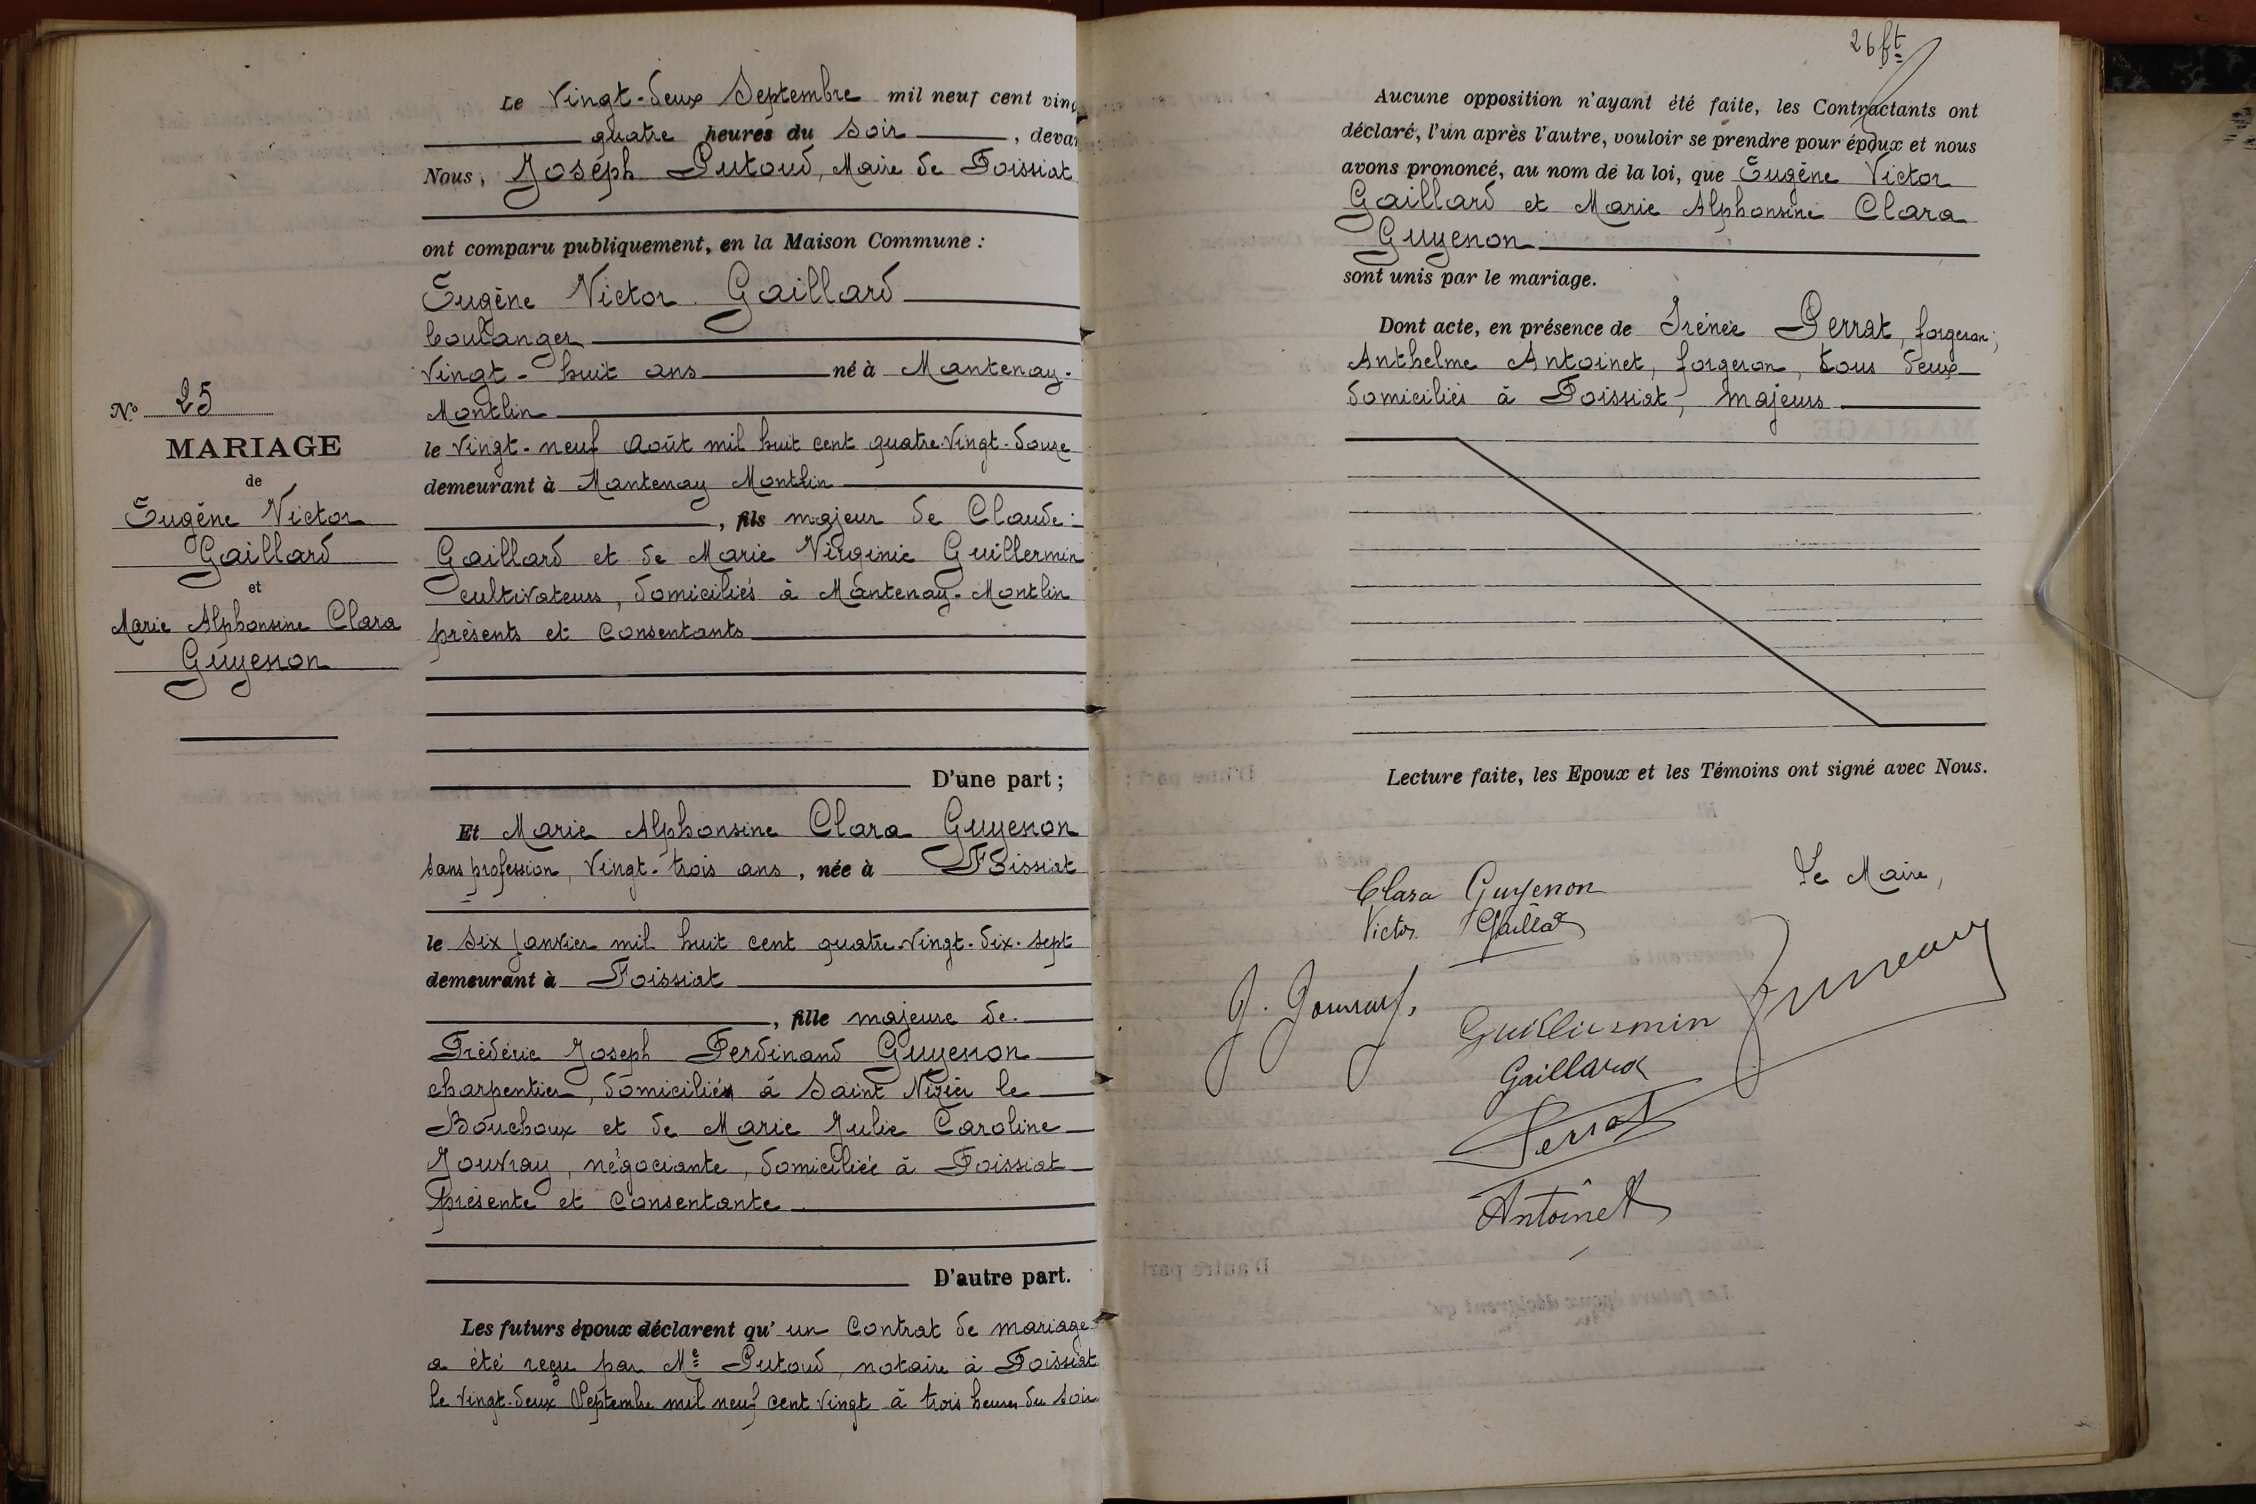 Le Vingt-deux Septembre mil neuf cent vin
quatre heures du soir, deva
Nous, Joseph Putoud, Maire de Foissiat
ont comparu publiquement, en la Maison Commune :
Eugène Victor Gaillard
boulanger
vingt-huit ans né à Mantenay-
Montlin
le vingt-neuf août mil huit cent quatre-vingt-douze
demeurant à Mantenay Montlin
, fils majeur de Claude
Gaillard et de Marie Virginie Guillermin
cultivateurs, domiciliés à Mantenay-Montlin
présents et consentants
D'une part ;
N° 25
MARIAGE
de
Eugène Victor
Gaillard
et
Marie Alphonsine Clara
Guyenon
Et Marie Alphonsine Clara Guyenon
sans profession, vingt-trois ans, née à Foissiat
le six Janvier mil huit cent quatre-vingt-dix-sept
demeurant à Foissiat
, fille majeure de
Frédéric Joseph Ferdinand Guyenon
charpentier, domicilié à Saint Nizier le
Bouchoux et de Marie Julie Caroline
Jouvray, négociante, domiciliée à Foissiat
présente et consentante
D'autre part.
Les futurs époux déclarent qu' un contrat de mariage
a été reçu par Me Putoud, notaire à Foissiat
le vingt-deux Septembre mil neuf cent vingt à trois heures du soir
26 ft
Aucune opposition n'ayant été faite, les Contractants ont
déclaré, l'un après l'autre, vouloir se prendre pour époux et nous
avons prononcé, au nom de la loi, que Eugène Victor
Gaillard et Marie Alphonsine Clara
Guyenon
sont unis par le mariage.
Dont acte, en présence de Irénée Perrat, forgeron;
Anthelme Antoinet, forgeron, tous deux
domiciliés à Foissiat, majeurs
Lecture faite, les Epoux et les Témoins ont signé avec Nous.
Le Maire,
Clara Guyenon
Victor Gaillard
Guillermin
Gaillard
Perrat
Antoinet